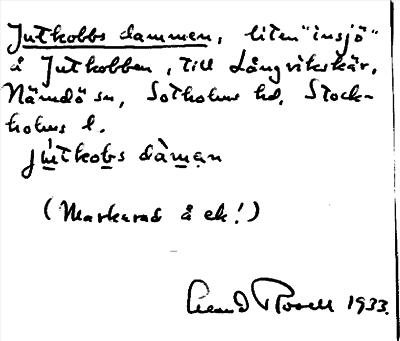 Jutkobbs dammen, liten "insjö"
å Jutkobben, till Långvikskär,
Nämdö sn, Sotholms hd, Stock-
holms l.
jùtkobs dàman
(Markerad å ek!)
Rosell 1933.